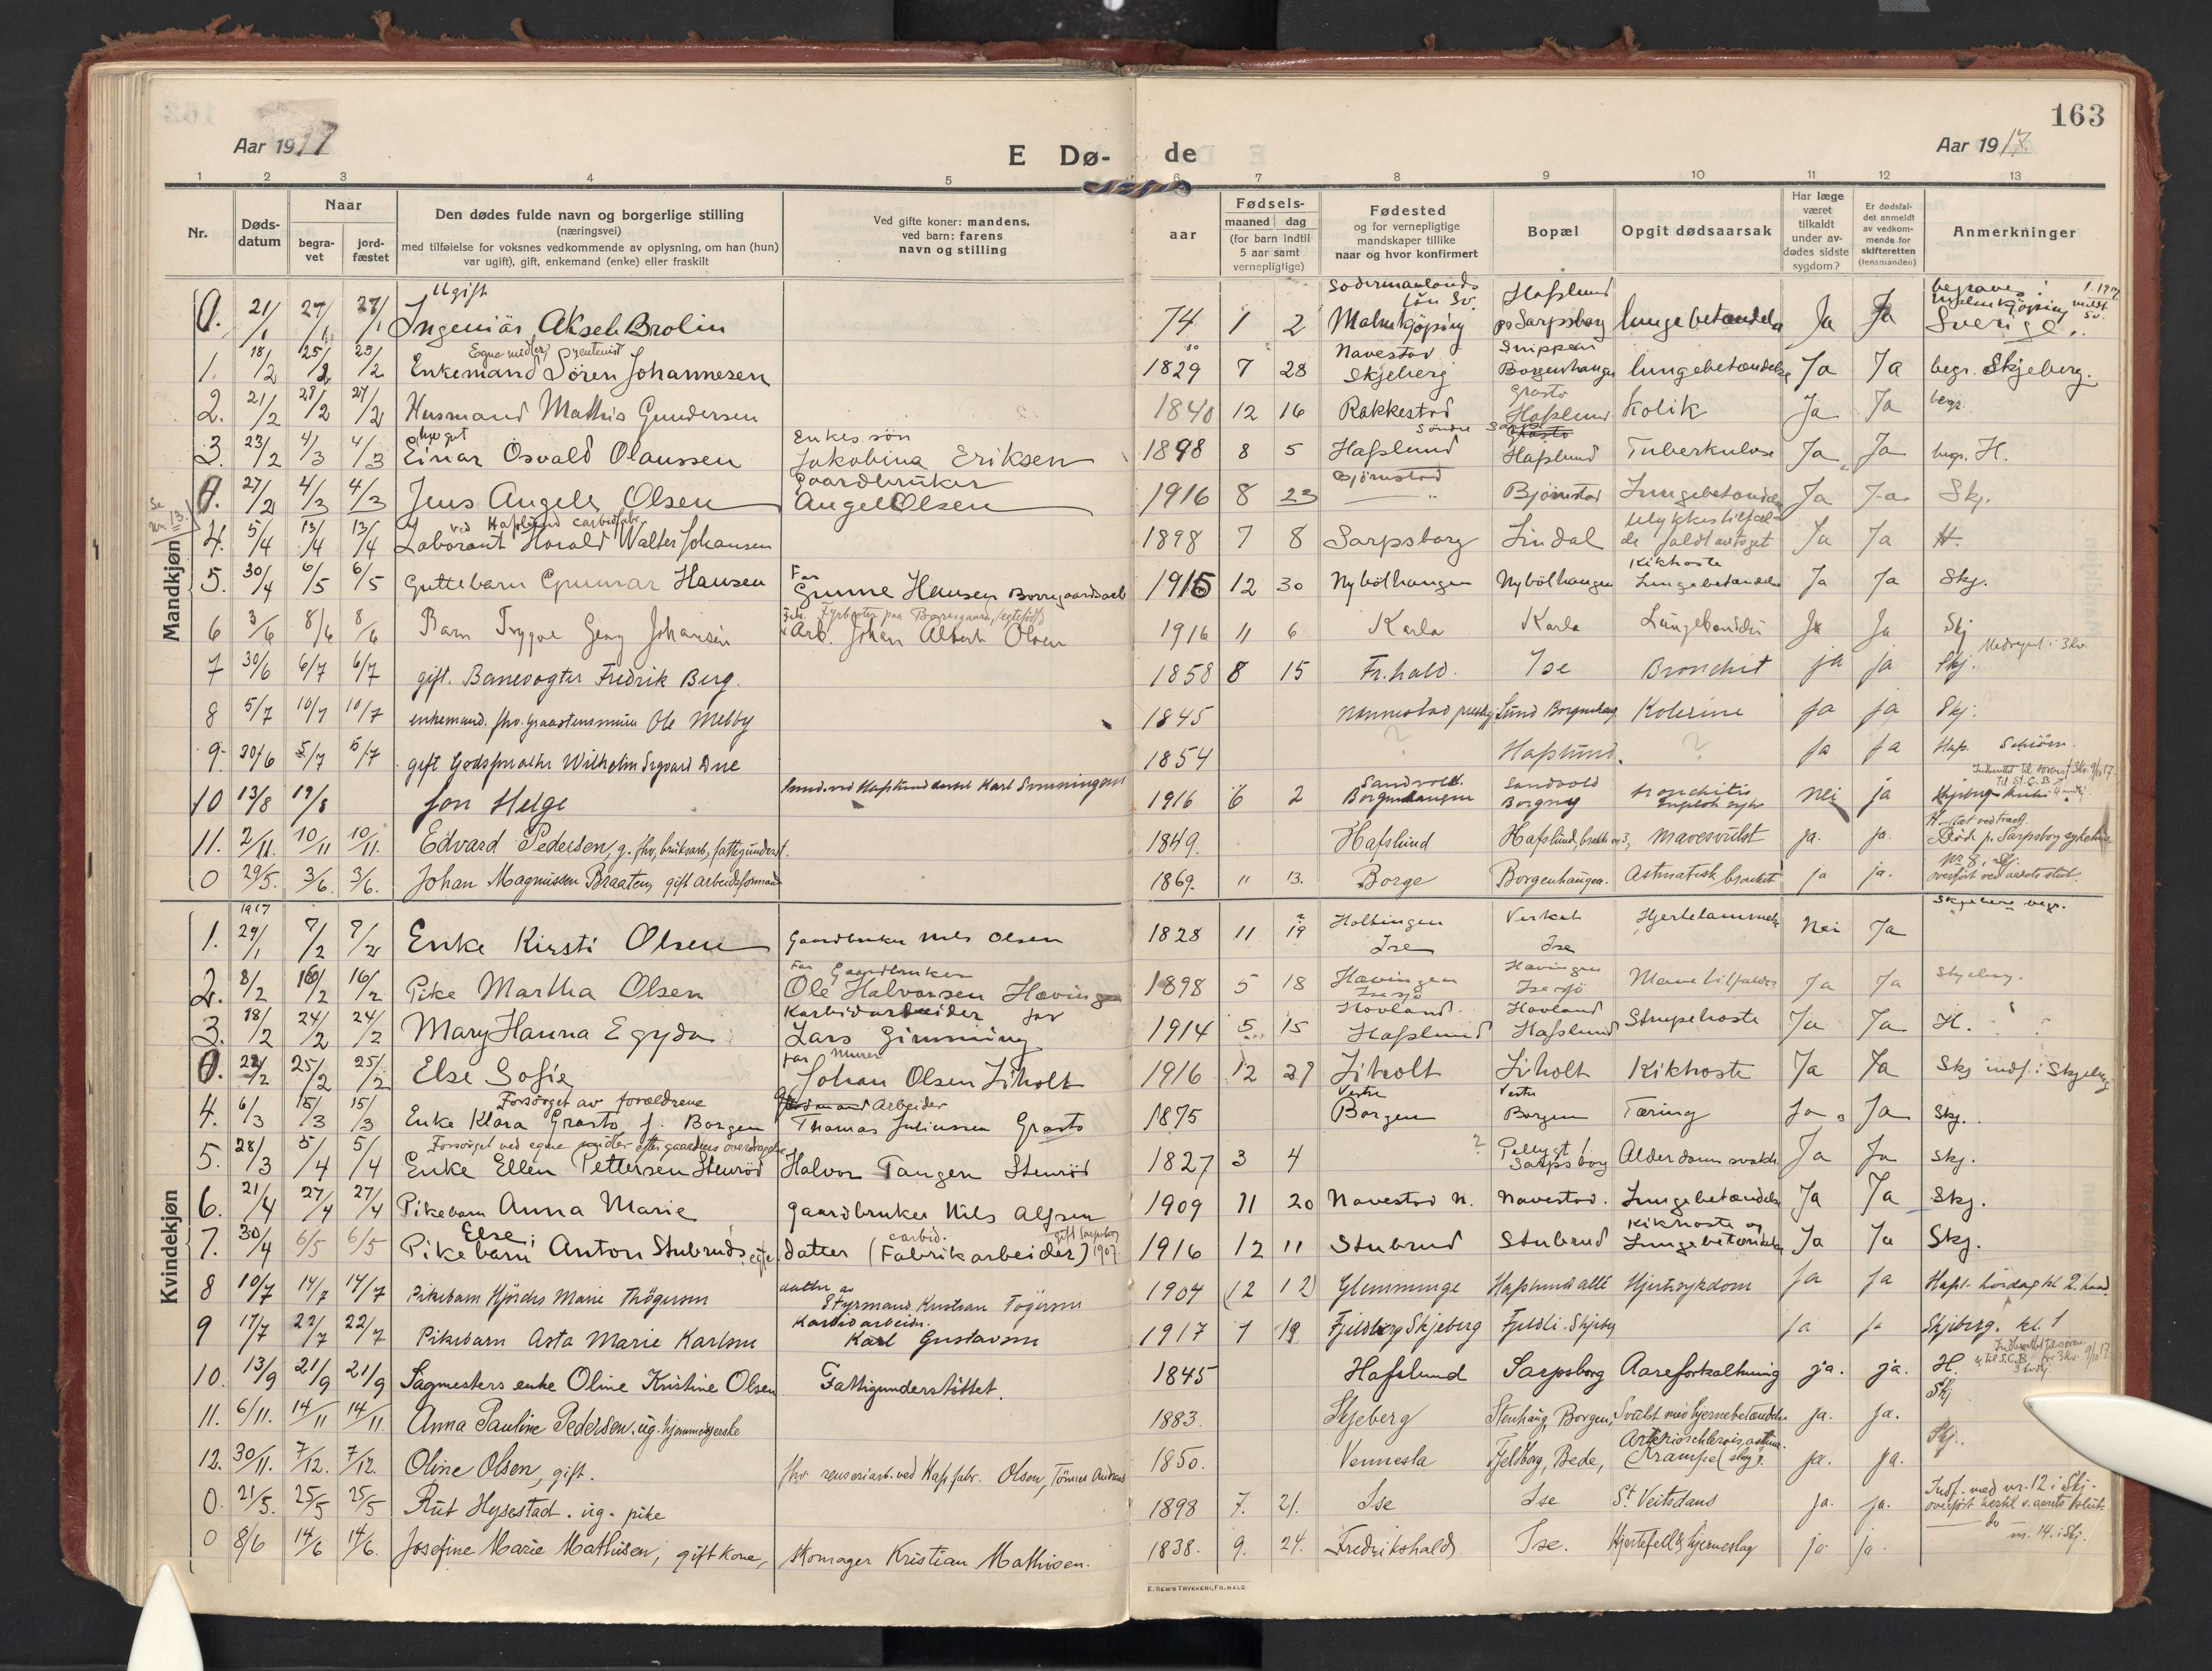 163
Aar 1917
E Dø-
de
Aar 1917.
1 2 3 4 5 6 7 8 9 10 11 12 13
Nr.
Døds-
datum
Naar
begra-
vet
jord-
fæstet
Den dødes fulde navn og borgerlige stilling
(næringsvei)
med tilføielse for voksnes vedkommende av oplysning, om han (hun)
var ugift), gift, enkemand (enke) eller fraskilt
Ved gifte koner: mandens,
ved barn: farens
navn og stilling
aar
Fødsels-
maaned dag
(for barn indtil
5 aar samt
vernepligtige)
Fødested
og for vernepligtige
mandskaper tillike
naar og hvor konfirmert
Bopæl
Opgit dødsaarsak
Har læge
været
tilkaldt
under av-
dødes sidste
sygdom?
Er dødsfal-
det anmeldt
av vedkom-
mende for
skifteretten
(lensmanden)
Anmerkninger
Mandkjøn
0. 21/1 27/1 27/1 Ugift Ingeniör Aksel Brolin 74 1 2 Södermanlands län Sv. Malmköping Hafslund Sarpsborg lungebetændelse Ja Ja begraves i Malmköping Sverige
1. 18/2 25/2 25/2 Egne midler Enkemand Sören Johannesen 1829 7 28 Navestad Skjeberg Borgenhaugen lungebetændelse Ja Ja begr. Skjeberg.
2. 21/2 28/2 Husmand Mathis Gundersen 1840 12 16 Rakkestad Grasto Hafslund Kolik Ja Ja begr.
3. 23/2 4/3 4/3 Einar Osvald Olaussen Enkes sön Jakobina Eriksen 1898 8 5 Söndre Hafslund Hafslund Tuberkulose Ja Ja begr. H.
se nr. 13.
0. 27/2 4/3 4/3 Jens Angels Olsen Gaardbruker Angel Olsen 1916 8 23 Björnstad Bjørnstad Lungebetændelse Ja Ja Skj.
4. 5/4 13/4 13/4 Laborant ved Hafslund carbidfabr. Harald Walter Johansen 1898 7 8 Sarpsborg Lindal Ulykkestilfælde faldt av toget Ja Ja H.
5. 30/4 6/5 6/5 Guttebarn Gunnar Hansen Far Gunne Hansen Borregaardsarb 1915 12 30 Nybölhaugen Nybölhaugen Kikhoste Lungebetændelse Ja Ja Skj.
6 3/6 8/6 8/6 Barn Trygve Georg Johansen Fyrböter paa Borregaard, (egtefødt) Arb. Johan Albert Olsen 1916 11 6 Karla Karla Ja Ja Skj
7 30/6 6/7 6/7 gift. Banevogter Fredrik Berg. 1858 8 15 Fr.hald. Ise Bronchit ja ja Skj. Medregnet i 3kv.
8 5/7 10/7 10/7 enkemand. fhv. Ole Melby 1845 Nannestad Lund Borgenhaug Kolerine ja ja Skj.
9. 30/6 5/7 5/7 gift Godsforvalter Wilhelm Sigvard Due 1854 ? Hafslund. ? ja ja Haf.
10 13/8 19/8 Jon Helge 1916 6 2 Sandvold. Borgenhaugen Sandvold Borgen bronchitis Engelsk syke nei ja
11. 2/11. 10/11 10/11. Edvard Pedersen, g. fhv. bruksarb., fattigunderst. 1849. Hafslund Hafslund, brakke no 3, Mavesvulst ja. ja. Døde p. Sarpsborg sykehus
0 29/5. 3/6. 3/6. Johan Magnussen Braaten, gift arbeidsformand 1869. 11 13. Borge Borgenhaugen. Astmatisk bronkit ja ja. Nr 8. Skj. overført ved aarets slut.
Kvindekjøn
1917
1. 29/1 7/2 7/2 Enke Kirsti Olsen Gaardbruker Nils Olsen 1828 11 19 Holtingen Ise Ise Hjertelammelse Nei Ja Skjeberg begr.
2. 8/2 16/2 16/2 Pike Martha Olsen Far Gaardbruker Ole Halvorsen Hævingen 1898 5 18 Hævingen Isesjö Hævingen Isesjö Ja Ja Skjeberg.
3. 18/2 24/2 24/2 Mary Hanna Egyda Karbidarbeider far Lars Gimming 1914 5 15 Hovland Hafslund Hovland Hafslund Strupehoste Ja Ja H.
0. 22/2 25/2 25/2 Else Sofie far Murer Johan Olsen Liholt 1916 12 27 Liholt Liholt Kikhoste Ja Ja Skj indf. i Skjeberg
4. 6/3 15/3 15/3 Forsörget av forældrene Enke Klara Grasto f. Borgen Arbeider Thomas Juliussen Grasto 1875 Vestre Borgen Vestre Borgen Tæring Ja Ja Skj.
5. 28/3 5/4 5/4 Forsörget ved egne midler efter gaardens overdragelse Enke Ellen Pettersen Stenröd Halvor Tangen Stenröd 1827 3 4 ? Sarpsborg Alderdomssvakh. Ja Ja Skj.
6. 21/4 27/4 27/4 Pikebarn Anna Marie gaardbruker Nils Alfsen 1909 11 20 Navestad N. Navestad. Lungebetændelse Ja Ja Skj.
7. 30/4 6/5 6/5 Else, Pikebarn Anton Stubruds egte datter (carbid. Fabrikarbeider) gift Sarpsborg 1907 1916 12 11 Stubrud Stubrud Kikhoste og Lungebetændelse Ja Ja Skj.
8 10/7 14/7 14/7 Pikebarn Hjördis Marie Thögersen datter av Styrmand Kristian Tögersen 1904 12 12 Glemminge Hafslund allé Hjertesykdom ja ja Hafsl. Lördag kl 2.
9 17/7 22/7 22/7 Pikebarn Asta Marie Karlsen Karbidarbeider Karl Gustavsen 1917 1 19 Fjeldberg Skjeberg Fjeldli. Skjeberg ja ja Skjeberg. kl. 1
10. 13/9 21/9 21/9 Sagmesters enke Oline Kristine Olsen Fattigunderstöttet. 1845 Hafslund Sarpsborg Aareforkalkning ja. ja. H.
11. 6/11. 14/11 14/11. Anna Pauline Pedersen. ug. hjemmesyerske 1883. Skjeberg Stenhaug, Borgen, Svulst med hjernebetændelse ja. ja. Skj
12. 30/11. 7/12. 7/12. Oline Olsen, gift. fhv. renseriarb. ved Haf. fabr. Olsen, Tönnes Andreas 1850. Vennesla Fjeldborg, Bede, Krampe (slag?). ja. ja. Skj.
0. 21/5. 25/5 25/5 Rut Hysestad. ug. pike 1898 7. 21. Ise Ise St Veitsdans ja. ja. Indf. med nr. 12 i Skj. overført hertil v. aarets slut.
0 8/6 14/6 14/6. Josefine Marie Mathisen, gift kone, Skomager Kristian Mathisen. 1838. 9. 24. Fredrikshald. Ise. Hjertefeil & hjerneslag ja ja. do nr. 14. i Skj.
E. SEM'S TRYKKERI, FR.HALD